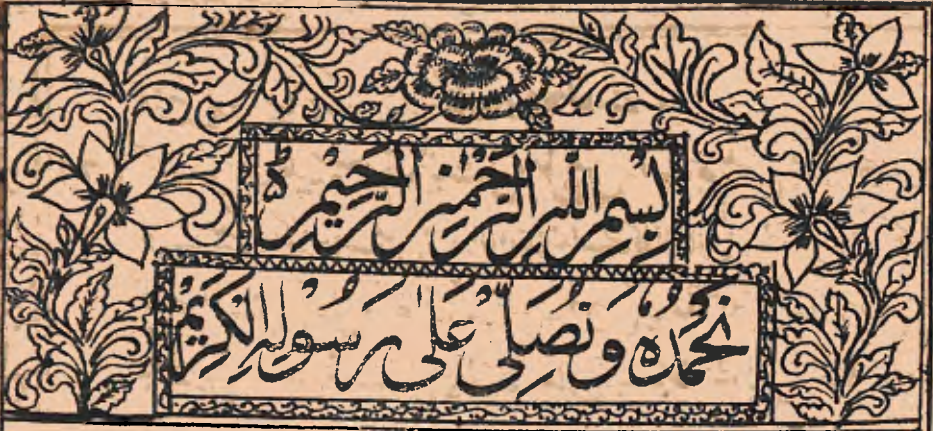 بِسْمِ اللّٰہِ الرَّحْمٰنِ الرَّحِیْمِ ہ
نَحْمَدُہٗ وَ نُصَلِّیْ عَلٰی رَسُوْلِہِ الْکَرِیْمِ